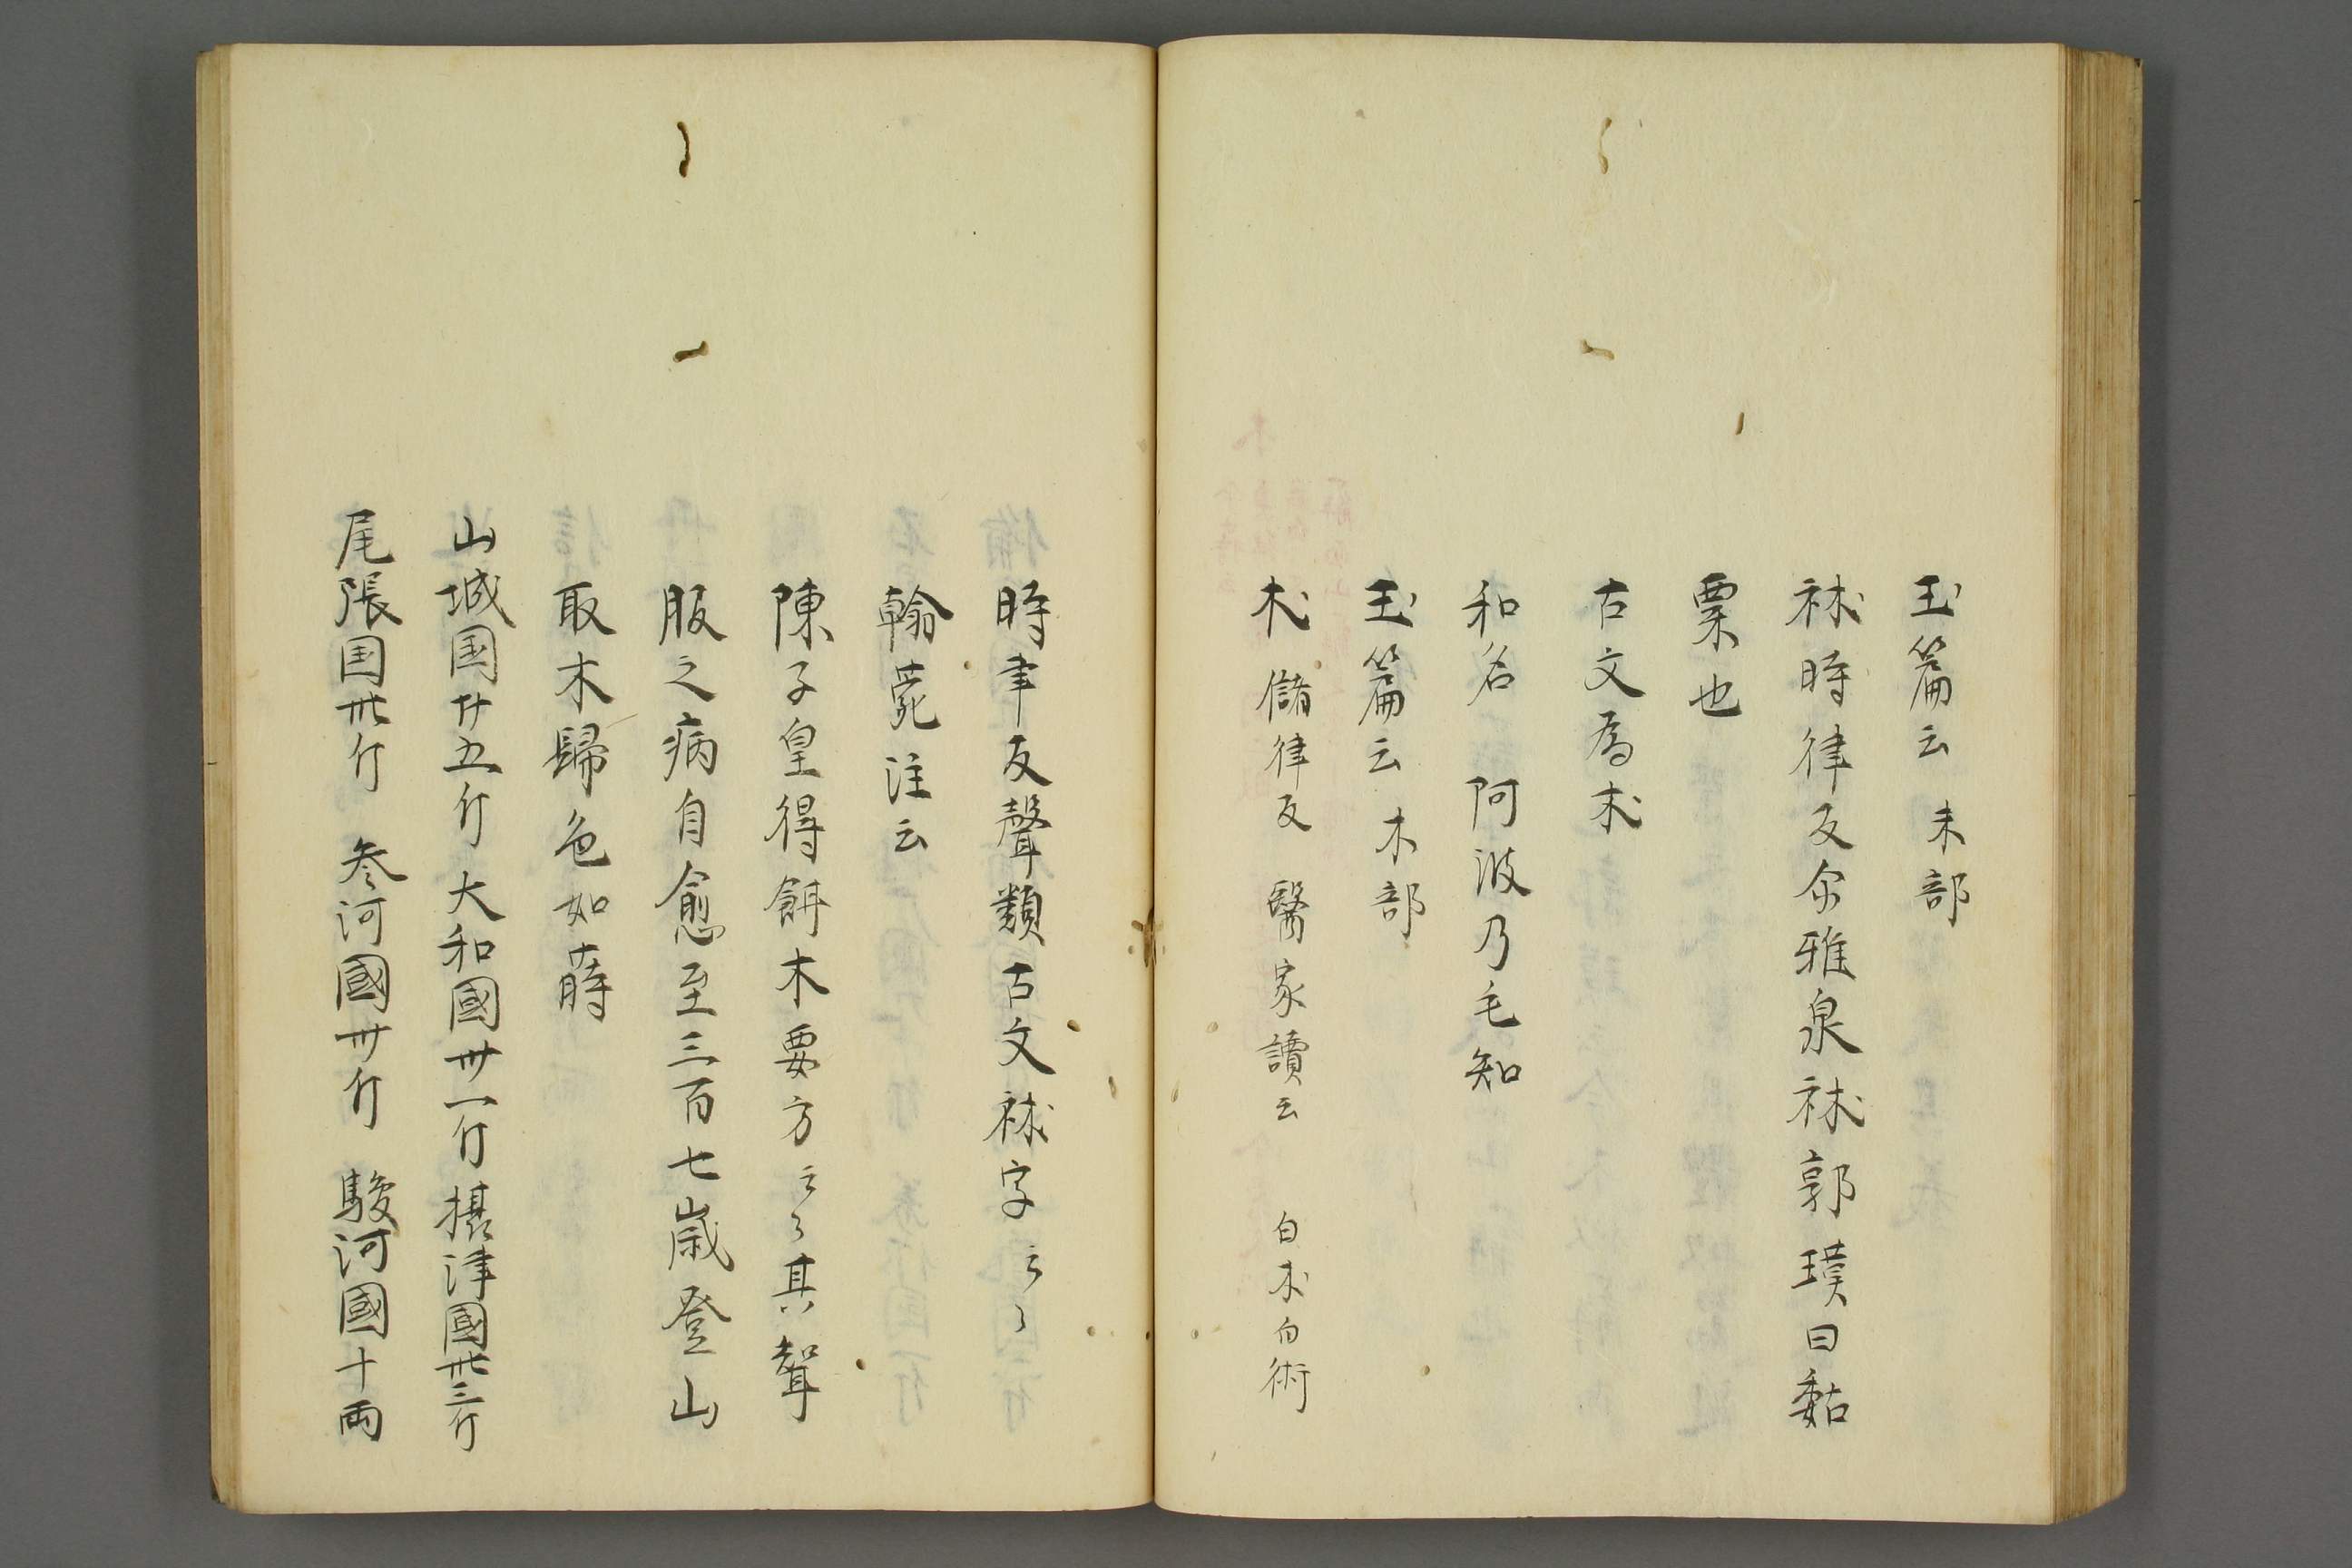 玉篇云 未部
秫時律反尒雅泉秫郭璞曰黏
粟也
古文爲朮
和名 阿波乃毛知
玉篇云 木部
朮儲律反 醫家讀云 白朮白術
時聿反聲類古文秫字云々
翰苑注云
陳子皇得餌木要方云々其聟
服之病自愈至三百七歳登山
取木歸色如蒔
山城国廿五斤 大和國卅一斤 攝津國卌三斤
尾張国卌斤 叅河國卅斤 駿河國十兩